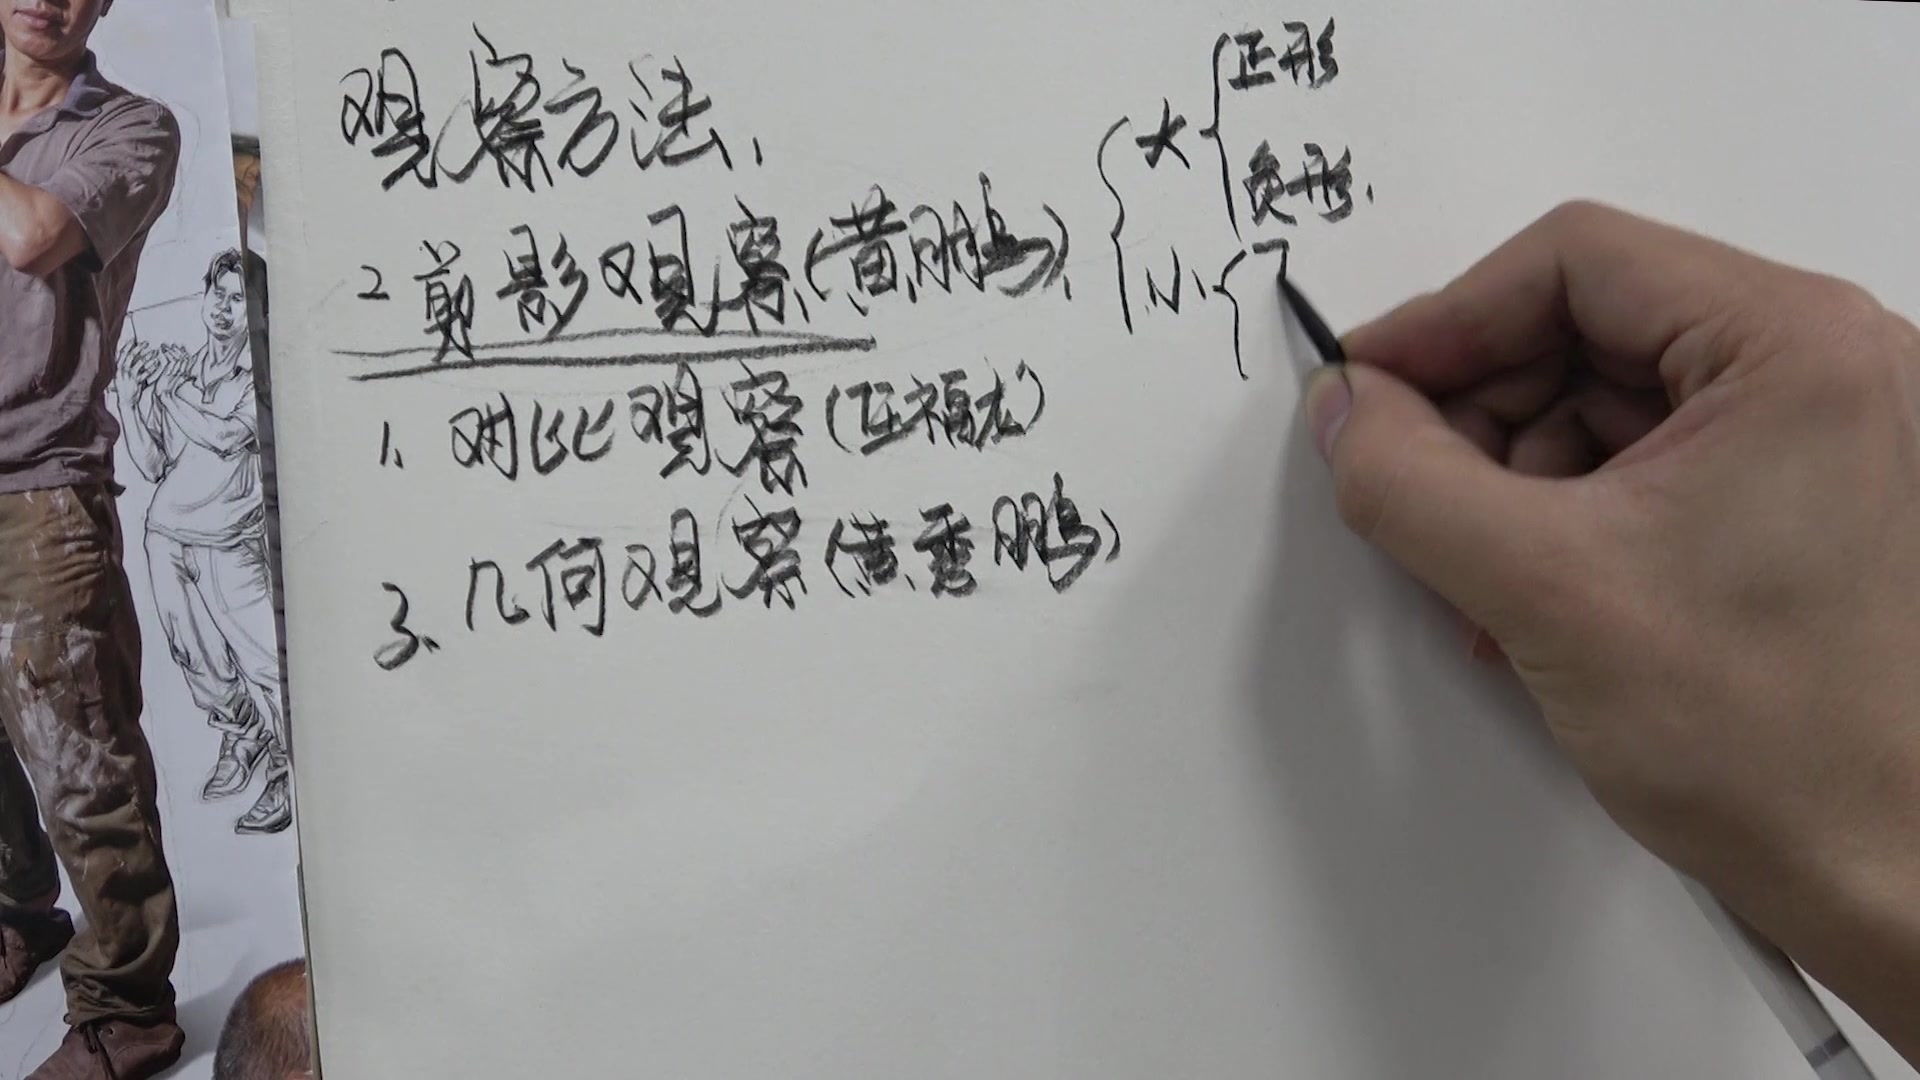 观察方法、
2 剪影观察(黄鹏)、
1、对比观察(伍福龙)
3、几何观察(黄秀鹏)
大
正形
负形、
小